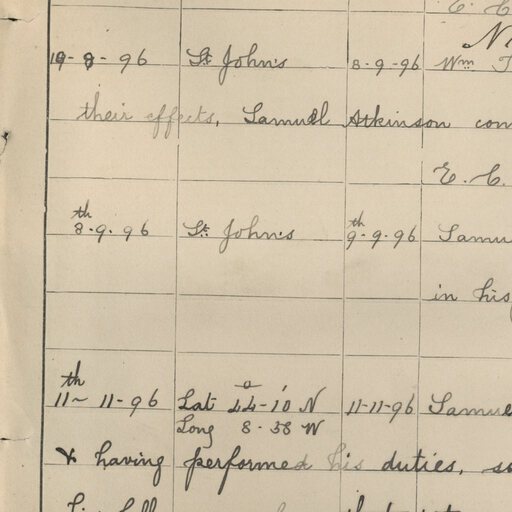 E. C.
N
19-8-96 St. John's 8-9-96 Wm T
their effects. Samuel Atkinson con
E. C.
8th.9.96 St. John's 9th-9.96 Samu
in his
11th~ 11-96 Lat 44°-10' N 11-11-96 Samue
Long 8-38 W
& having performed his duties, so